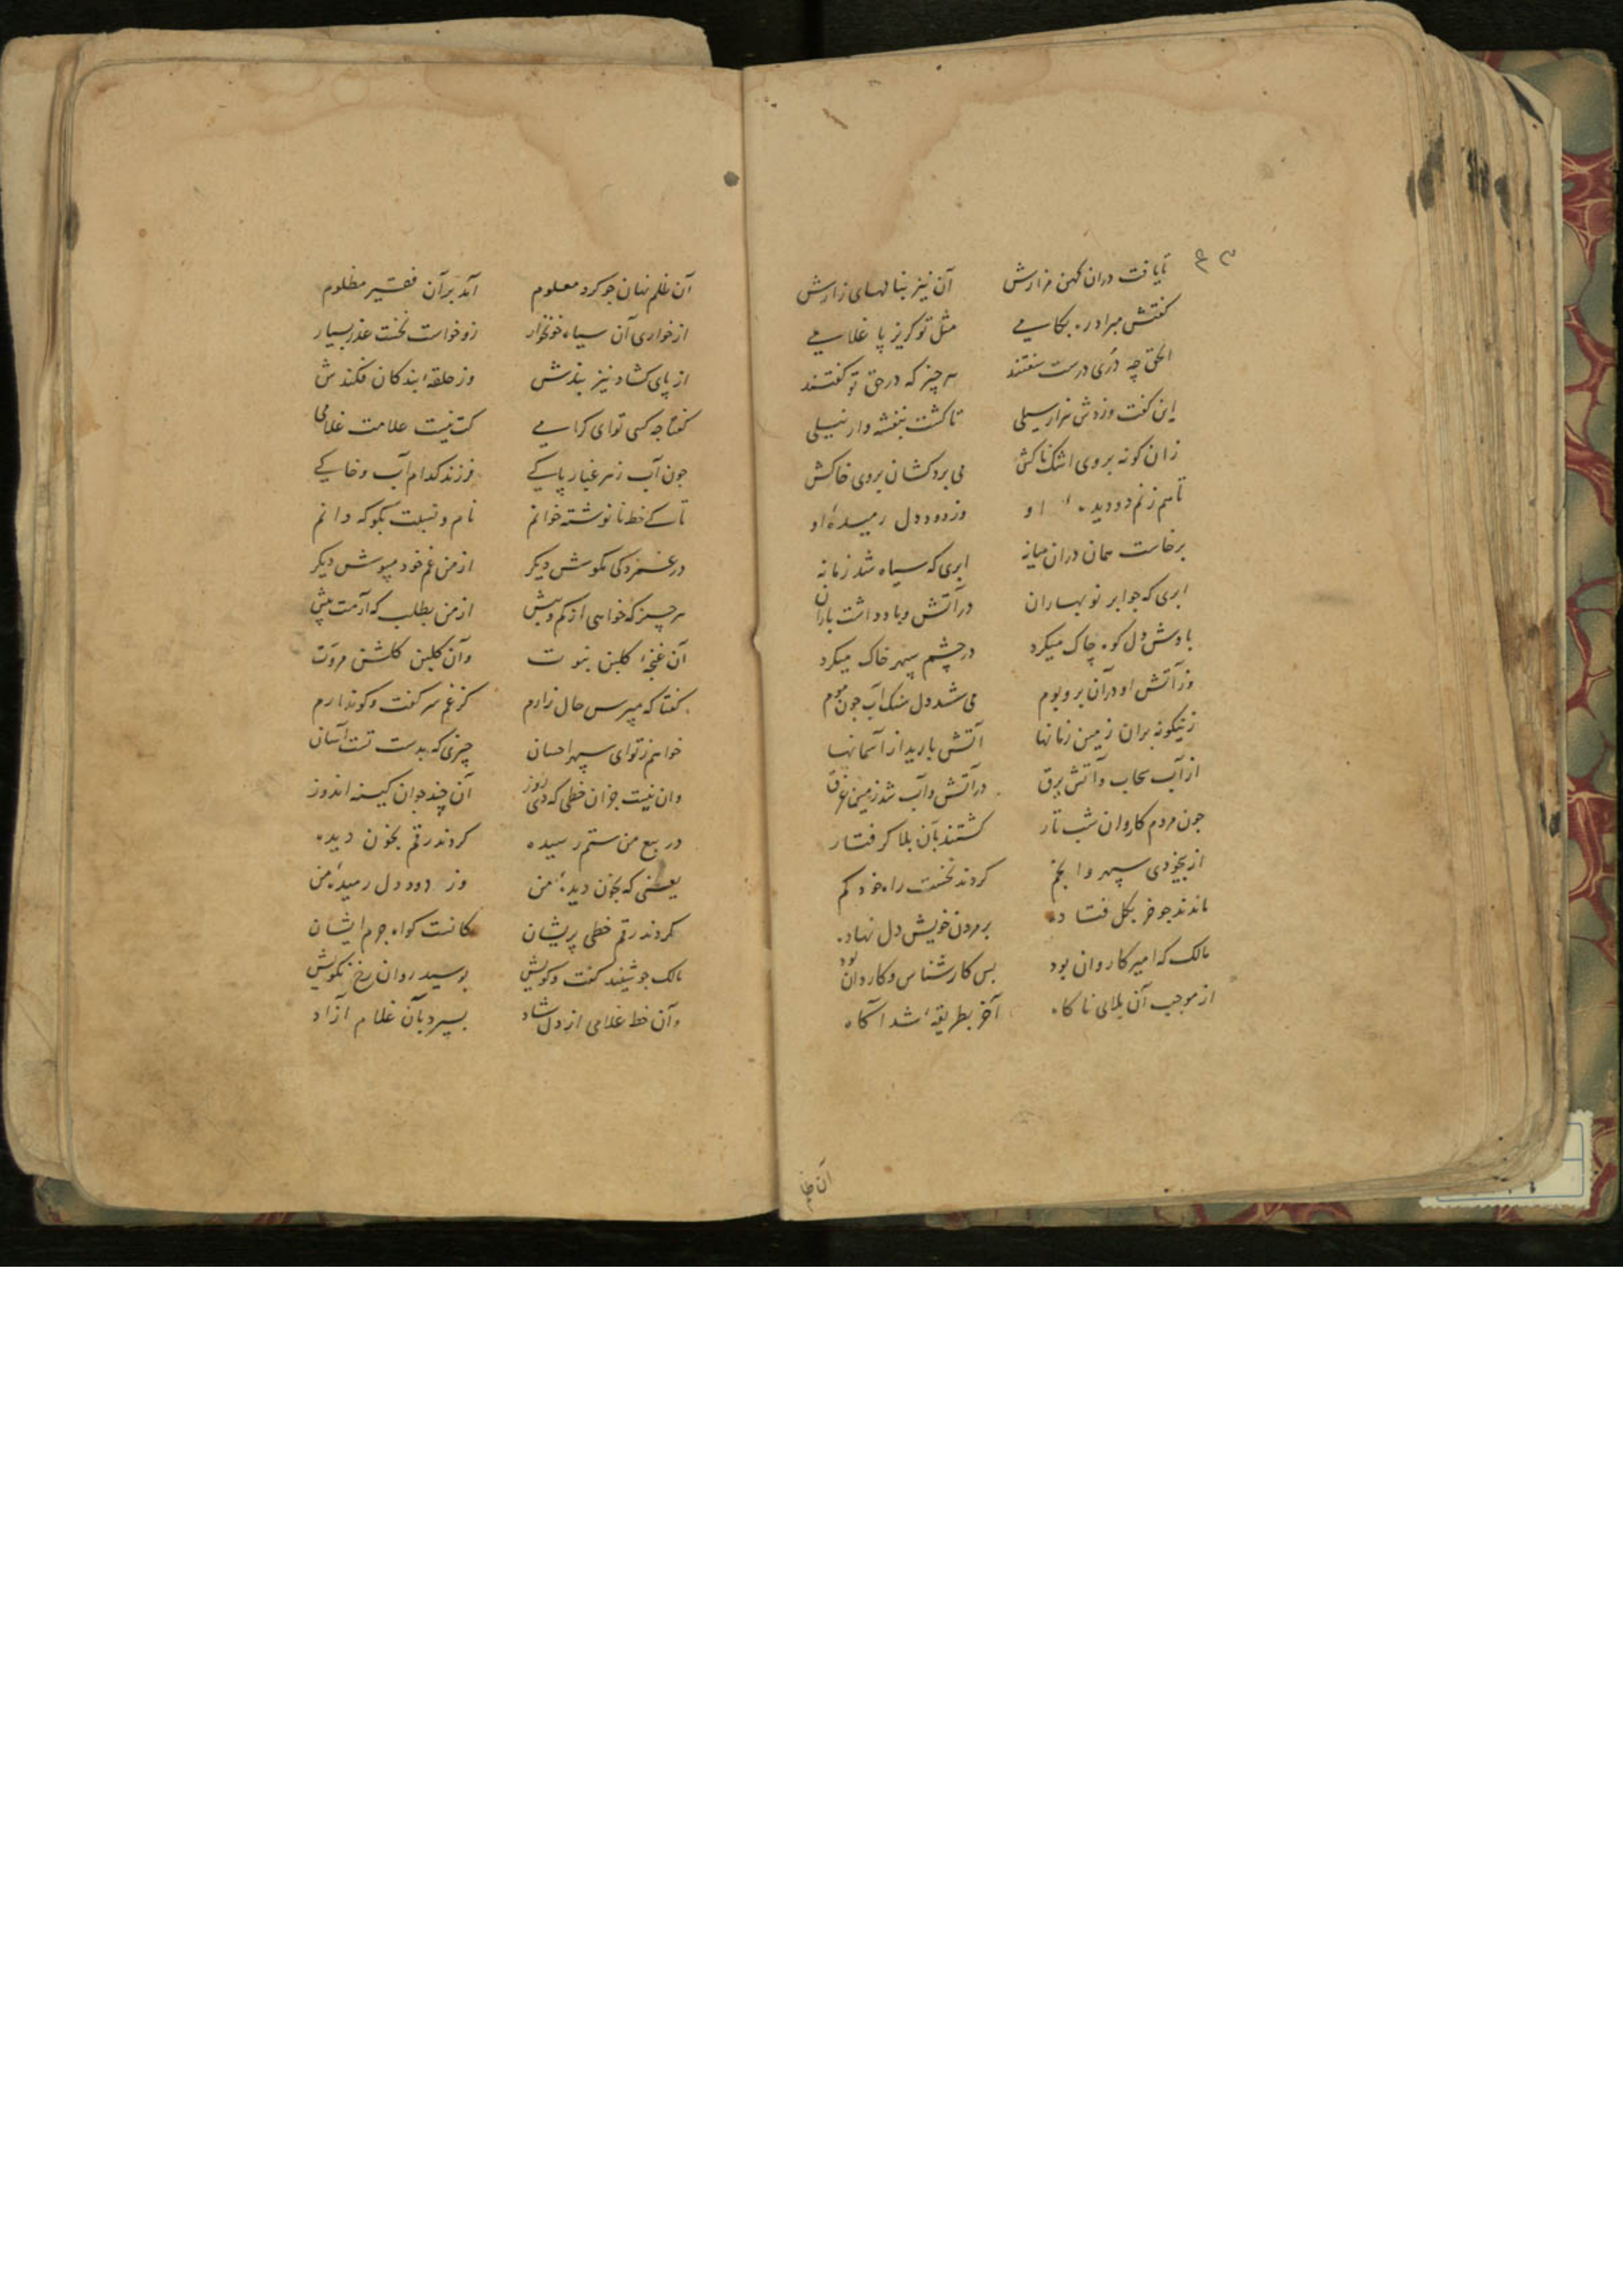 تا یافت دران کهن مزارش    آن نیز بنالهای زارش
کفتش مبرا دره بکامی    مثل تو کریز پا غلامی
الحق چه دری درست سفتند    هر چیز که در حق تو کفتند
این کفت وزدش هزار سیلی    تا کشت بنفشه وار نیلی
زان کونه بروی اشک ناکش    می برد کشان بروی خاکش
تا هم زنم دو دیده او    وز دود دل رمیدهٔ او
برخاست همان دران میانه    ابری که سیاه شد زمانه
ابری که جو ابر نو بهاران    در آتش و باد داشت باران
بادش دل کوه چاک میکرد    در چشم سپهر خاک میکرد
وز آتش او در آن بر و بوم    می شد دل سنک آب جون موم
زینکونه بران زمین زمانها    آتش بارید از آسمانها
از آب سحاب و آتش برق    در آتش و آب شد زمین غرق
جون مردم کاروان شب تار    کشتند بآن بلا کرفتار
از بیخودی سپهر و انجم    کردند نخست راه خود کم
ماندند جو خر بکل فتاده    بر مردن خویش دل نهاده
مالک که امیر کاروان بود    بس کارشناس و کاردان بود
از موجب آن بلای ناکاه    آخر بطریقهٔ شد آکاه
آن ظلم
آن ظلم نهان جو کرد معلوم    آمد بر آن فقیر مظلوم
از خواری آن سیاه خونخوار    زو خواست نخست عذر بسیار
از پای کشاد نیز بندش    وز حلقهٔ بندکان فکندش
کفتا جه کسی تو ای کرامی    کت نیست علامت غلامی
جون آب ز هر غبار پاکی    فرزند کدام آب و خاکی
تا کی خط نانوشته خوانم    نام و نسبت بکو که دانم
در غمزدکی مکوش دیکر    از من غم خود مپوش دیکر
هر چیز که خواهی از کم و بیش    از من بطلب که آرمت پیش
آن غنچهٔ کلبن نبوت    وآن کلبن کلشن مروت
کفتا که مپرس حال زارم    کز غم سر کفت و کو ندارم
خواهم ز تو ای سپهر احسان    چیزی که بدست تست آسان
وان نیست جز آن خطی که دی روز    آن چند جوان کینه اندوز
در بیع من ستم رسیده    کردند رقم بخون دیده
یعنی که بخون دیدهٔ من    وز دود دل رمیدهٔ من
کردند رقم خطی پریشان    کانست کواه جرم ایشان
مالک جو شنید کفت و کویش    بوسید روان رخ نکویش
وآن خط غلامی از دل شاد    بسپرد بآن غلام آزاد